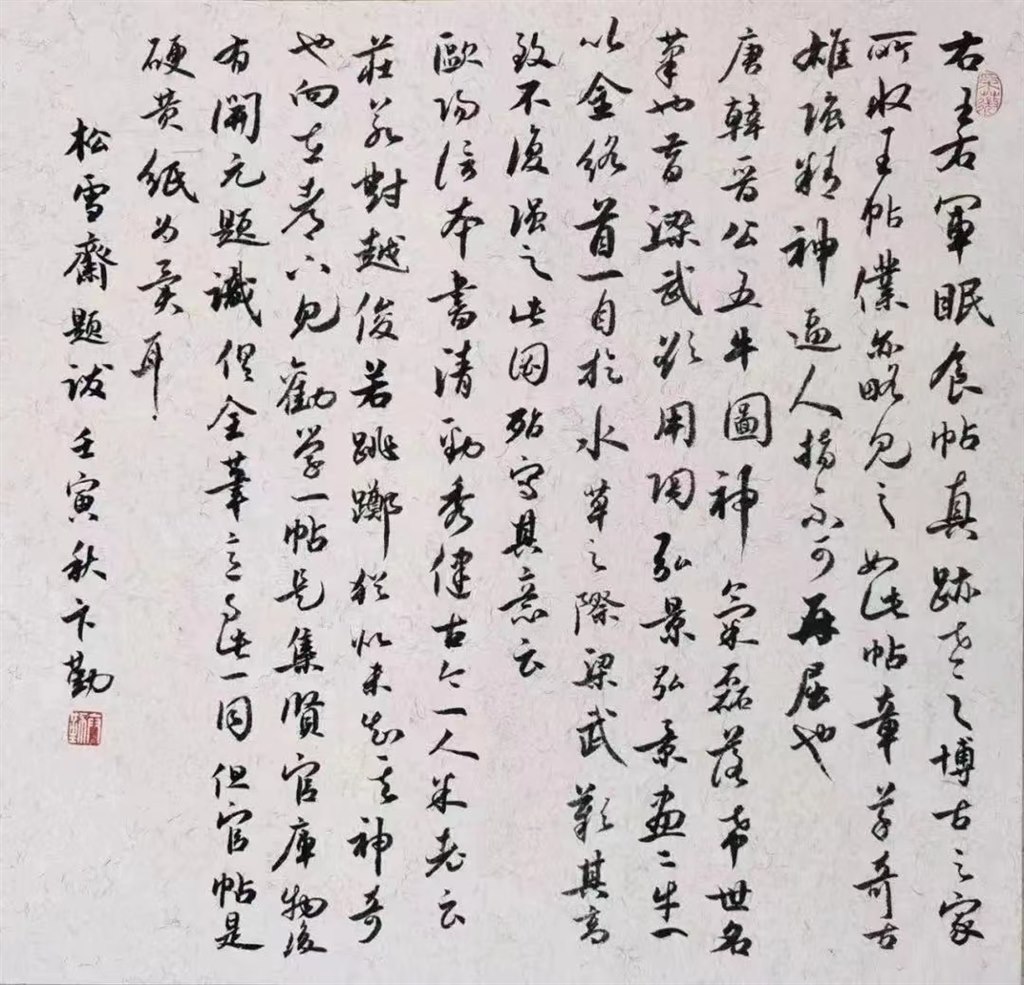 右王右軍眠食帖真跡考之博古之家
所收王帖僕亦略見之如此帖章草奇古
雄强精神逼人指不可再屈也
唐韓晉公五牛圖神氣磊落希世名
筆也昔梁武欲用陶弘景弘景畫二牛一
以金絡首一自於水草之際梁武歎其高
致不復强之此圖殆寫其意云
歐陽信本書清勁秀健古今一人米老云
莊若對越俊若跳躑猶似未知其神奇
也向在都下見勸學一帖是集賢官庫物後
有開元題識俱全筆意與此一同但官帖是
硬黄紙為異耳
松雪齋題跋 壬寅秋卞勤